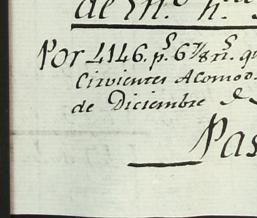 de m.º h.
Por 4146. p.s 6 7/8 r.s q
Cirvientes Acomod
de Diciembre
Pas